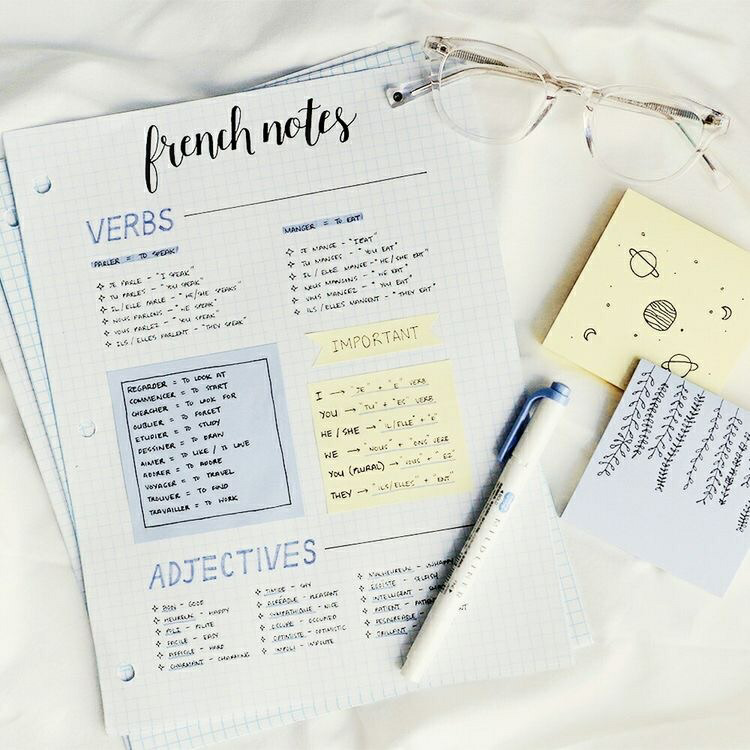 french notes
VERBS
PARLER = TO SPEAK
JE PARLE - "I SPEAK"
TU PARLES - "YOU SPEAK"
IL/ELLE PARLE - "HE/SHE SPEAKS"
NOUS PARLONS - "WE SPEAK"
VOUS PARLEZ - "YOU SPEAK"
ILS/ELLES PARLENT - "THEY SPEAK"
MANGER = TO EAT
JE MANGE - "I EAT"
TU MANGES - "YOU EAT"
IL/ELLE MANGE - "HE/SHE EAT"
NOUS MANGONS - "WE EAT"
VOUS MANGEZ - "YOU EAT"
ILS/ELLES MANGENT - "THEY EAT"
REGARDER = TO LOOK AT
COMMENCER = TO START
CHERCHER = TO LOOK FOR
OUBLIER = TO FORGET
ETUDIER = TO STUDY
DESSINER = TO DRAW
AIMER = TO LIKE / TO LOVE
ADORER = TO ADORE
VOYAGER = TO TRAVEL
TROUVER = TO FIND
TRAVAILLER = TO WORK
IMPORTANT
I → "JE" + "E" VERB
YOU → "TU" + "ES" VERB
HE/SHE → "IL/ELLE" + "E"
WE → "NOUS" + "ONS" VERB
YOU (PLURAL) → "VOUS" + "EZ"
THEY → "ILS/ELLES" + "ENT"
ADJECTIVES
BON - GOOD
HEUREUX - HAPPY
POLE - POLITE
FACILE - EASY
DIFFICILE - HARD
CHARMANT - CHARMING
TIMIDE - SHY
AGRÉABLE - PLEASANT
SYMPATHIQUE - NICE
OPTIMISTE - OPTIMISTIC
IMPOLI - IMPOLITE
MALHEUREUX - UNHAPPY
EGOISTE - SELFISH
INTELLIGENT -
PATIENT -
DESAGREABLE -
BRILLANT
MILDLINER